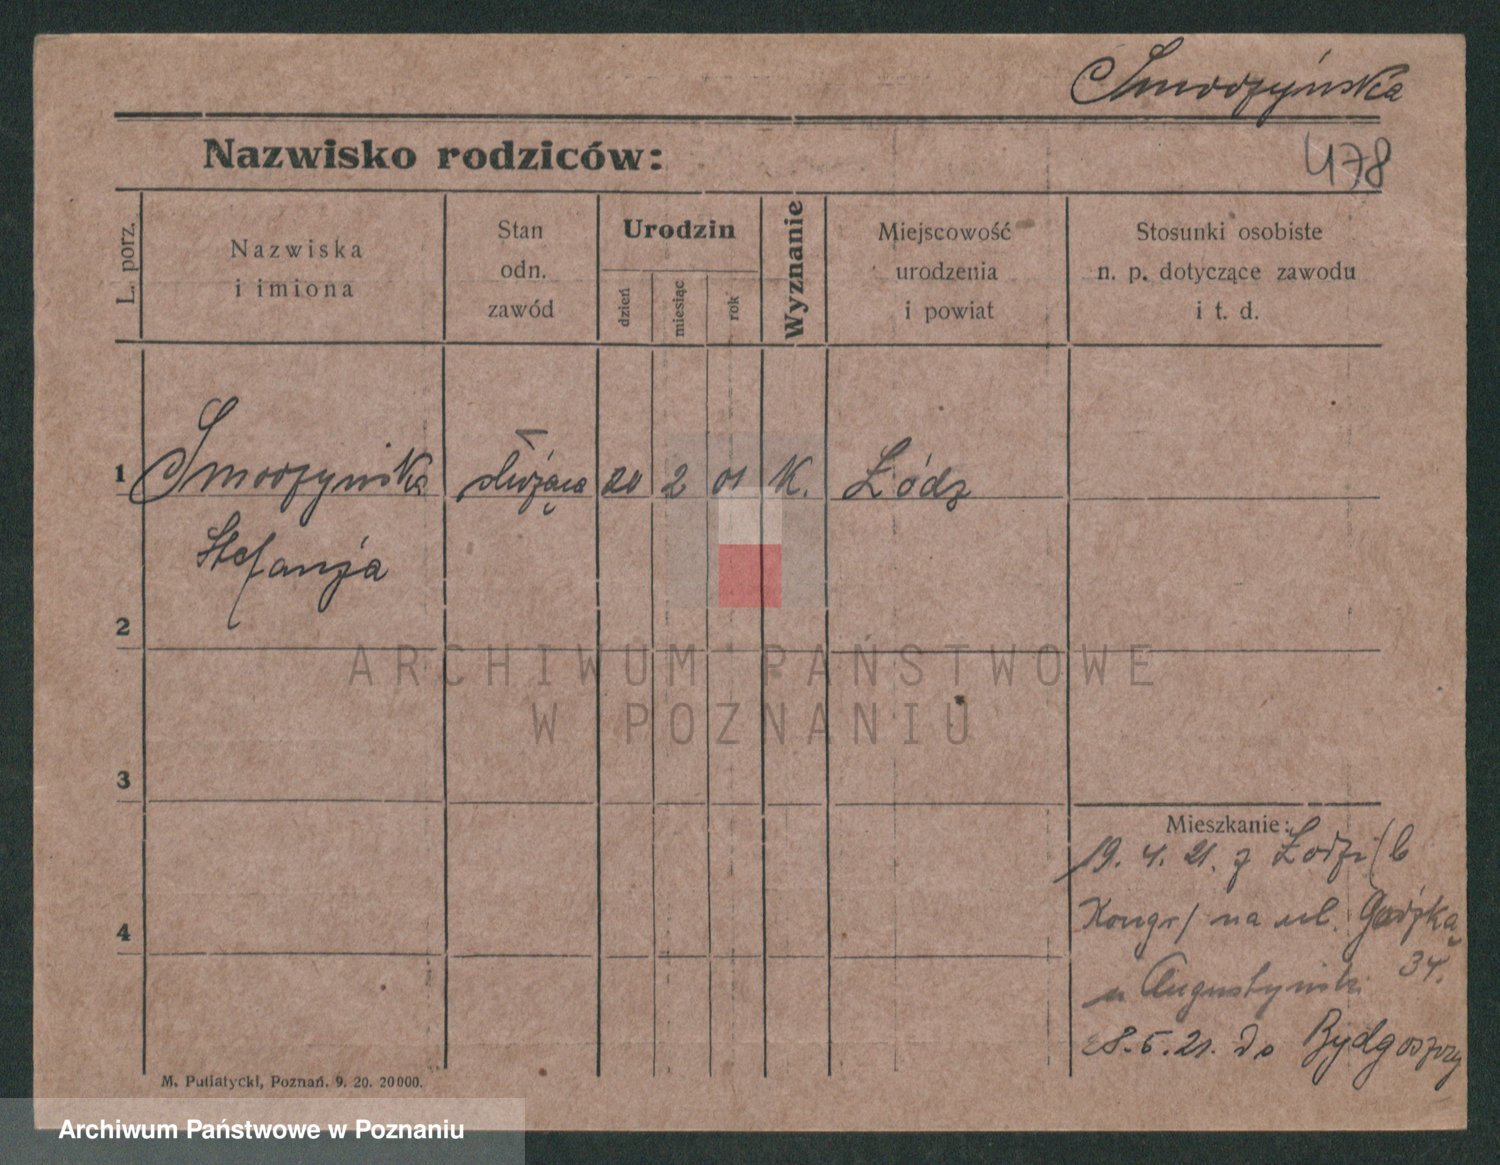 Smorzyńska
478
Nazwisko rodziców:
L. porz.
Nazwiska
i imiona
Stan
odn.
zawód
Urodzin
dzień
miesiąc
rok
Wyznanie
Miejscowość
urodzenia
i powiat
Stosunki osobiste
n. p. dotyczące zawodu
i t. d.
1 Smorzyńska służąca 20 2 01 K. Łódz
Stefanja
2
ARCHIWUM PAŃSTWOWE
W POZNANIU
3
Mieszkanie:
19. 4. 21. z Łodzi (b
Kongr) na ul.
4
u Augustyniski 34.
28. 5. 21. do Bydgoszczy
M. Putiatycki, Poznań. 9. 20. 20000.
Archiwum Państwowe w Poznaniu